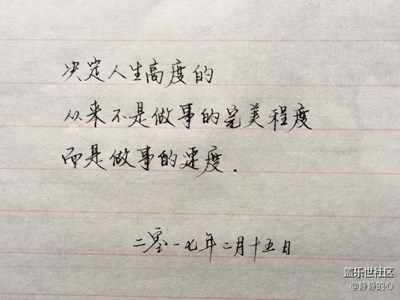 决定人生高度的
从来不是做事的完美程度
而是做事的速度.
二零一七年二月十五日
盖乐世社区
@静静的心